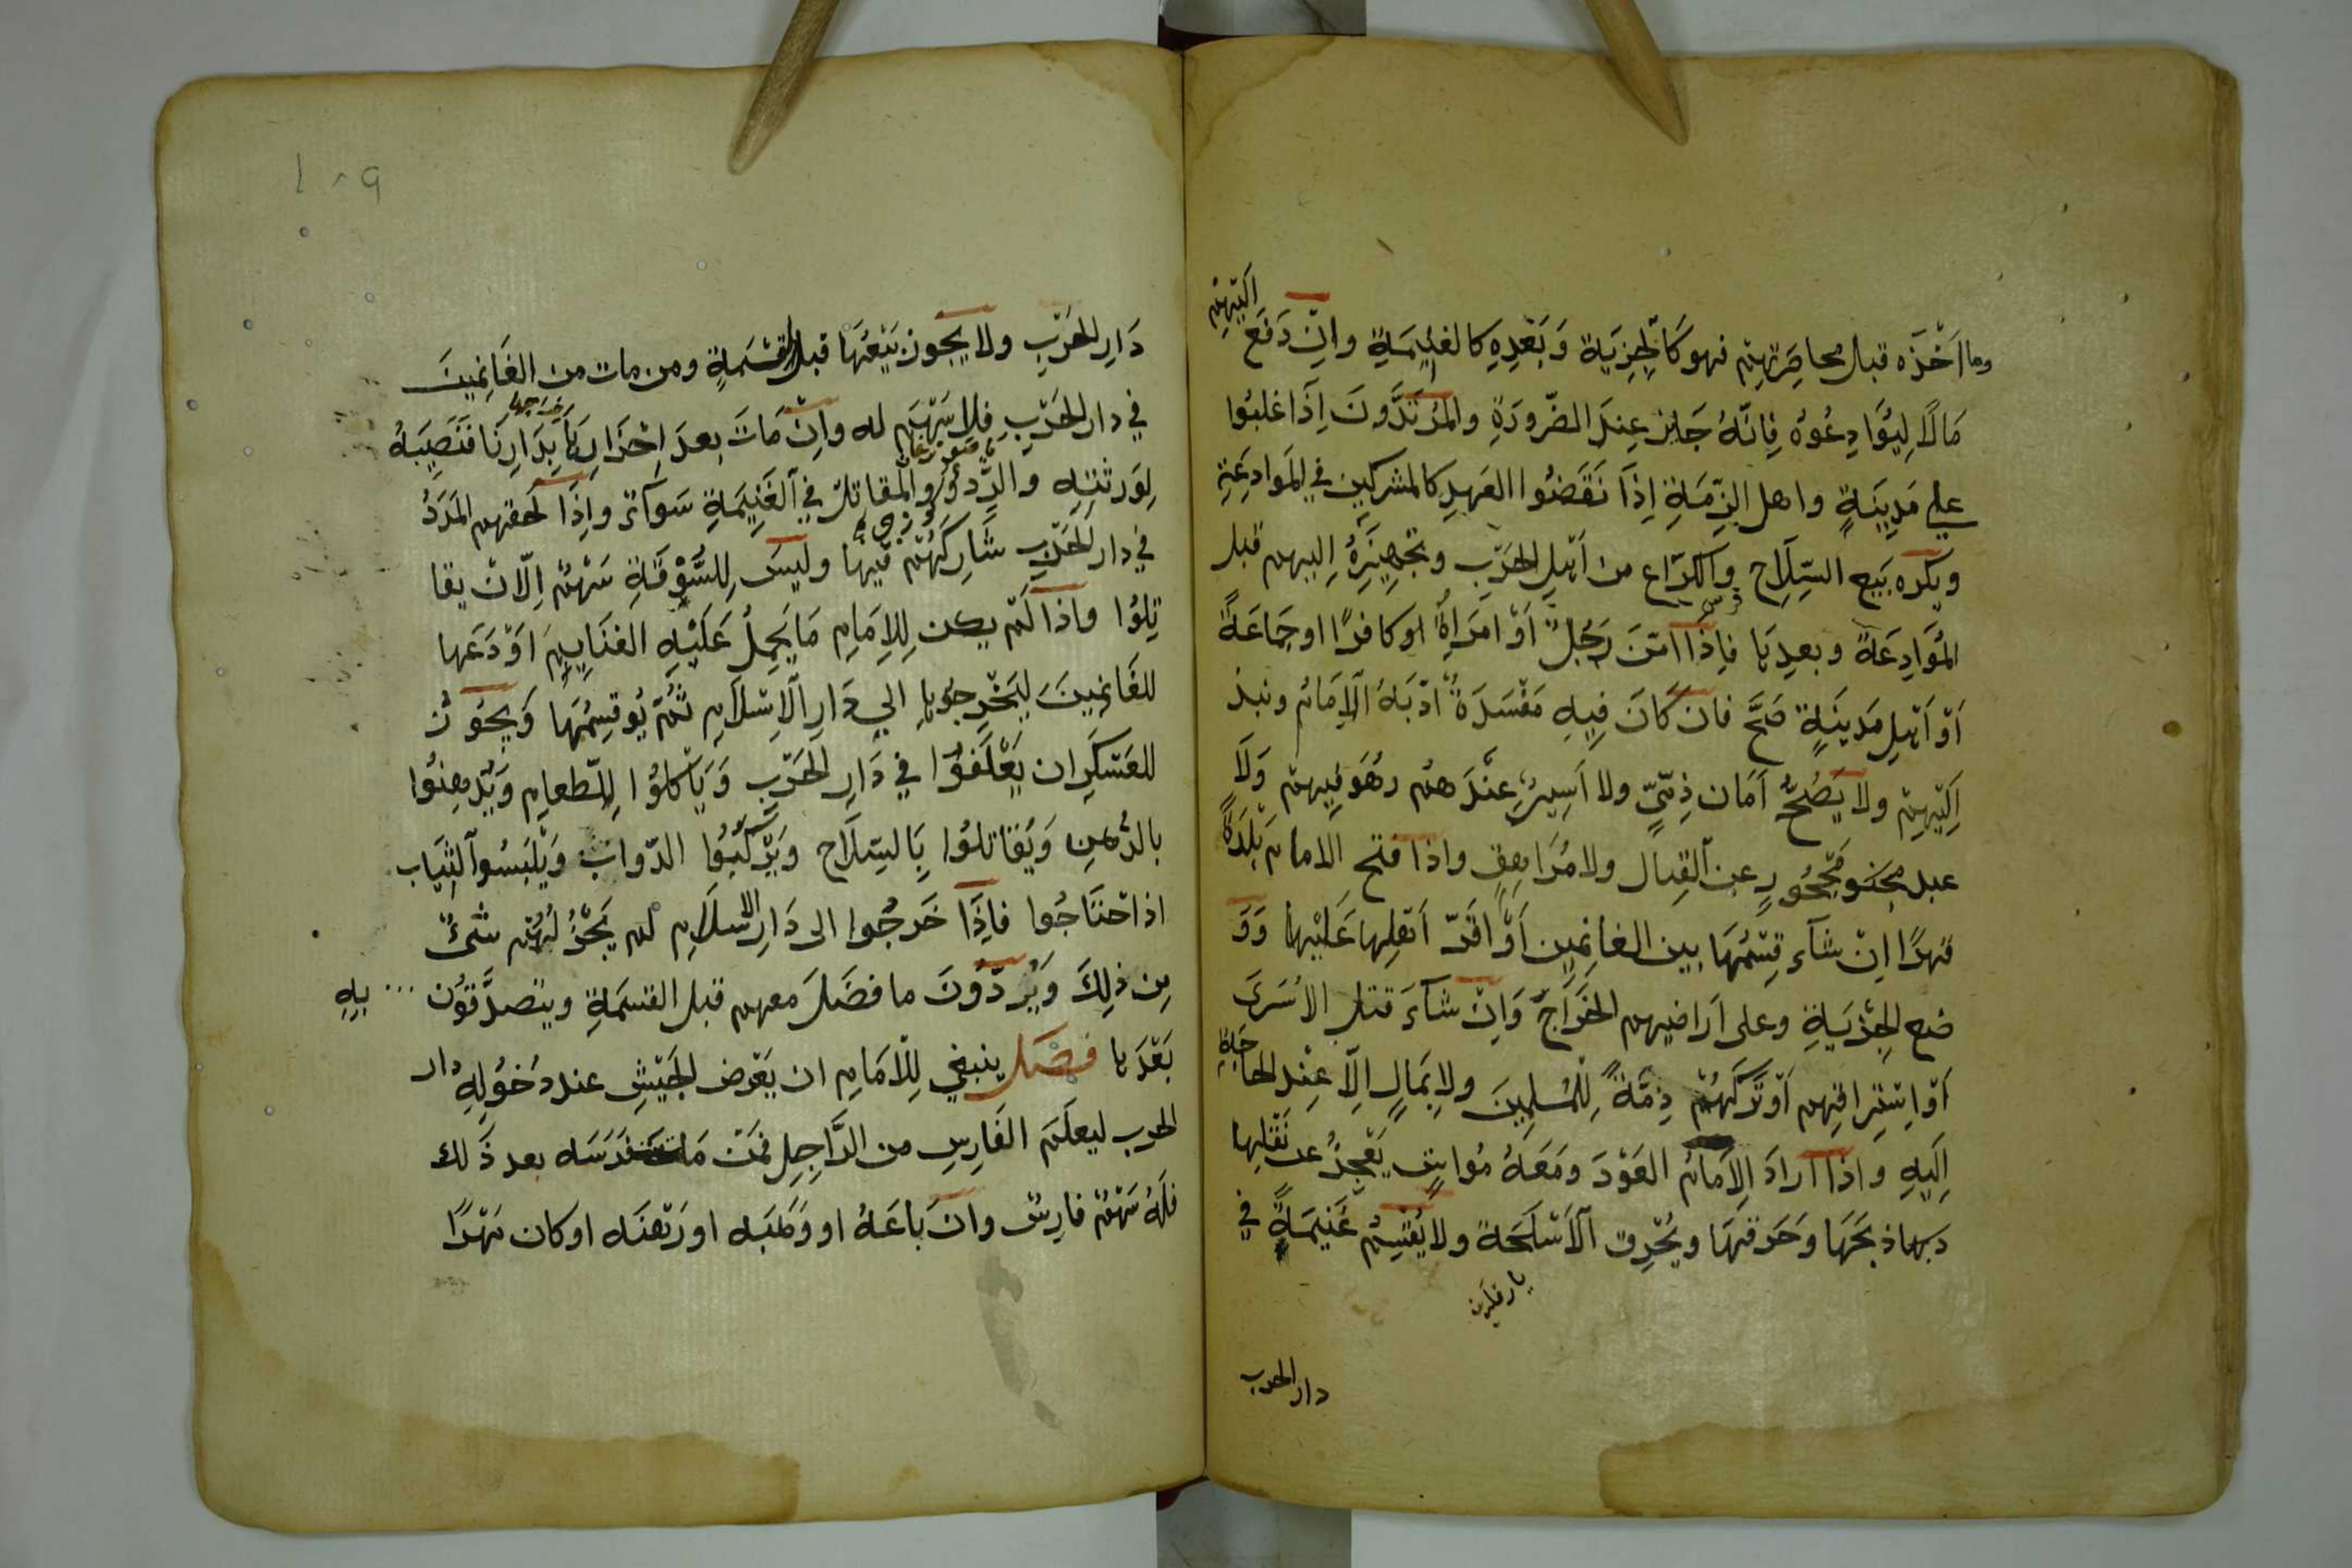 وما اَخْذَه قبل محاصَرتهِمْ فهو كَالْجِزيَة وَبَعْدِهِ كالغنيمَةِ واِنْ دَفَعَ اِلَيْهِمْ
مَالًا لِيُوَادِعُوهُ فَاِنَّهُ جَايز عِندَ الضّرورَةِ والمُرْتَدُّونَ اِذَا غلبُوا
علي مَدِينَةٍ واهل الذِّمَةِ اِذَا نَقَضُوا العَهدِ كالمشركين في المَوادَعَةِ
ويكره بَيع السِّلَاحِ وَالكرَاع من اَهْلِ الحَرْبِ وتجهِيزَهُ اِليهم قبل
فرس
المُوَادِعَةً وبعدِهَا فاِذَا امّنَ رَجُلٌ اَوْ امرَاةٌ اوكافرًا اوجَمَاعَةً
اَوْ اَهْلِ مَدينَةٍ صَحَّ فان كَانَ فِيهِ مَفْسَدَةٌ اَدّبَهُ اَلاِمَامُ ونبذ
اِلَيْهِمْ ولا يَصُحُّ اَمَان ذِمّيٍّ ولا اَسِيرٌ عِنْدَ همْ وهُوَ فِيهِمْ وَلَا
عبل محجُورٍ عن القِتال ولا مُرَاهِقٍ واذا فتح الامام بَلْدَةً
قهرًا اِنْ شآء قِسْمُهَا بين الغانِمين اَوْ اقَرّ اَهْلِها عَلَيْها وَوَ
ضع الجِزيَةِ وعلى اَراضيهم الخَرَاج وَاِنْ شآءَ قتل الاَسْرَىَ
اَوْ اِسْتِرَاقهم اَوْ تَرَكَهُمْ ذِمَّةً لِلْمُسلِمِينَ ولا بِمَالٍ اِلّا عِنْد الحاجَةِ
اِلَيهِ وَاذا اَرادَ الِاَمَامُ العَوْدَ ومَعَهُ مُواشٍ يَعْجِزُ عن نَقْلِها
دبهاذ بَحَهَا وَحَرقهَا ويُحْرِق اَلاَسْلَحَة ولا يُقسِمُ غَنِيمَةً في
دار الحرب
١٠٩
دَارِ الحَرْبِ ولا يَجُوز بَيْعُهَا قبل القسْمَةِ ومن مات من الغَانِمينَ
في دار الحَرْبِ فلا سَهْمَ له واِنْ مَاتَ بعدَ اِحْرَازِهَا بِدَارِنَا فَنَصِيبَهُ
لِوَرثتِهِ والرِّدؤُ والمقاتلُ في الغَنِيمَةِ سَوآءٌ واِذَا لحقهم المَدَدُ
في دار الحَرْبِ شَارِكَهُمْ فيها وليسَ لِلسُّوْقَةِ سَهْمٌ اِلّا انْ يقا
تِلُوا واذا لَمْ يكن لِلاِمَامِ مَا يَحِلُ عَلَيْهِ الغنَايِمَ اَوْدَعَها
للغَانِمِينَ لِيَخْرِجُوهَا الي دَارِ الاِسْلَامِ ثُمّ يُوقِسِمُهَا وَيَجُوْزُ
للعَسْكَرِ ان يَعْلَفوُا في دَارِ الحَرْبِ وَيَاكُلُوا الطّعام وَيُدهِنُوا
بالدُهنِ وَيُقاتلُوا بِالسِّلَاحِ وَيَرْكَبُوا الدّوابَّ وَيْلبَسُوا الثيَاب
اذا حْتَاجُوا فاِذَا خَرجُوا الى دَارِ الاسلَامِ لم يَجُزُ لَهُمْ شئٌ
مِن ذلِكَ وَيُردُّوُنَ ما فضَلَ معهم قبل القسمَةِ ويتصدَّقوُن ... بِهِ
بَعْدَهَا فصَل ينبغي لِلْاِمَامِ ان يَعْرض الجَيْشِ عند دُخُولِهِ دار
الحرب ليعلَمَ الفَارِسِ من الرَّاجِلِ فمَنْ مَات فرَسَه بعد ذَلك
فلَهُ سَهْمُ فارِسٌ وانْ بَاعَهُ او وَهَبَه او رَهنَه اوكان مَهْرًا